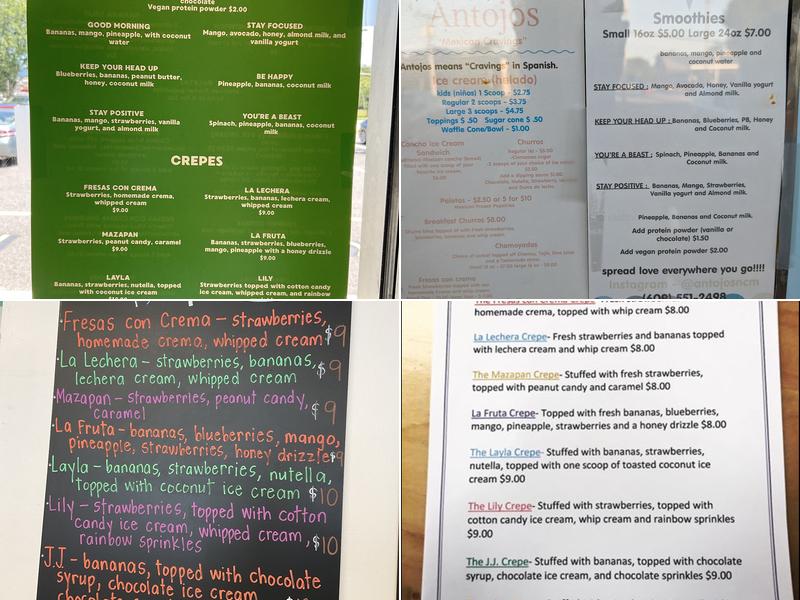 chocolate
Vegan protein powder $2.00
GOOD MORNING
Bananas, mango, pineapple, with coconut
water
STAY FOCUSED
Mango, avocado, honey, almond milk, and
vanilla yogurt
KEEP YOUR HEAD UP
Blueberries, bananas, peanut butter,
honey, coconut milk
BE HAPPY
Pineapple, bananas, coconut milk
STAY POSITIVE
Bananas, mango, strawberries, vanilla
yogurt, and almond milk
YOU'RE A BEAST
Spinach, pineapple, bananas, coconut
milk
CREPES
FRESAS CON CREMA
Strawberries, homemade crema,
whipped cream
$9.00
LA LECHERA
Strawberries, bananas, lechera cream,
whipped cream
$9.00
MAZAPAN
Strawberries, peanut candy, caramel
$9.00
LA FRUTA
Bananas, strawberries, blueberries,
mango, pineapple with a honey drizzle
$9.00
LAYLA
Bananas, strawberries, nutella, topped
with coconut ice cream
LILY
Strawberries, topped with cotton candy
ice cream, whipped cream, and rainbow
Antojos
"Mexican Cravings"
Antojos means "Cravings" in Spanish.
Ice cream (helado)
kids (niños) 1 Scoop - $2.75
Regular 2 scoops - $3.75
Large 3 scoops - $4.75
Toppings $ .50 Sugar cone $ .50
Waffle Cone/Bowl - $1.00
Concha Ice Cream
Sandwich
Churros
Paletas - $2.50 or 5 for $10
Mexican Frozen Popsicles
Breakfast Churros $8.00
Chamoyadas
Fresas con crema
Smoothies
Small 16oz $5.00 Large 24oz $7.00
bananas, mango, pineapple and
coconut water
STAY FOCUSED : Mango, Avocado, Honey, Vanilla yogurt
and Almond milk.
KEEP YOUR HEAD UP : Bananas, Blueberries, PB, Honey
and Coconut milk.
YOU'RE A BEAST : Spinach, Pineapple, Bananas and
Coconut milk.
STAY POSITIVE : Bananas, Mango, Strawberries,
Vanilla yogurt and Almond milk.
Pineapple, Bananas and Coconut milk.
Add protein powder (vanilla or
chocolate) $1.50
Add vegan protein powder $2.00
spread love everywhere you go!!!!
Instagram - @antojosncm
(609) 551-2498
·Fresas con Crema - strawberries,
homemade crema, whipped cream $9
·La Lechera - strawberries, bananas,
lechera cream, whipped cream $9
·Mazapan - strawberries, peanut candy,
caramel $9
·La Fruta - bananas, blueberries, mango,
pineapple, strawberries, honey drizzle $9
·Layla - bananas, strawberries, nutella,
topped with coconut ice cream $10
·Lily - strawberries, topped with cotton
candy ice cream, whipped cream,
rainbow sprinkles $10
·J.J. - bananas, topped with chocolate
syrup, chocolate ice cream
The Fresas con Crema Crepe- Fresh
homemade crema, topped with whip cream $8.00
La Lechera Crepe- Fresh strawberries and bananas topped
with lechera cream and whip cream $8.00
The Mazapan Crepe- Stuffed with fresh strawberries,
topped with peanut candy and caramel $8.00
La Fruta Crepe- Topped with fresh bananas, blueberries,
mango, pineapple, strawberries and a honey drizzle $8.00
The Layla Crepe- Stuffed with bananas, strawberries,
nutella, topped with one scoop of toasted coconut ice
cream $9.00
The Lily Crepe- Stuffed with strawberries, topped with
cotton candy ice cream, whip cream and rainbow sprinkles
$9.00
The J.J. Crepe- Stuffed with bananas, topped with chocolate
syrup, chocolate ice cream, and chocolate sprinkles $9.00